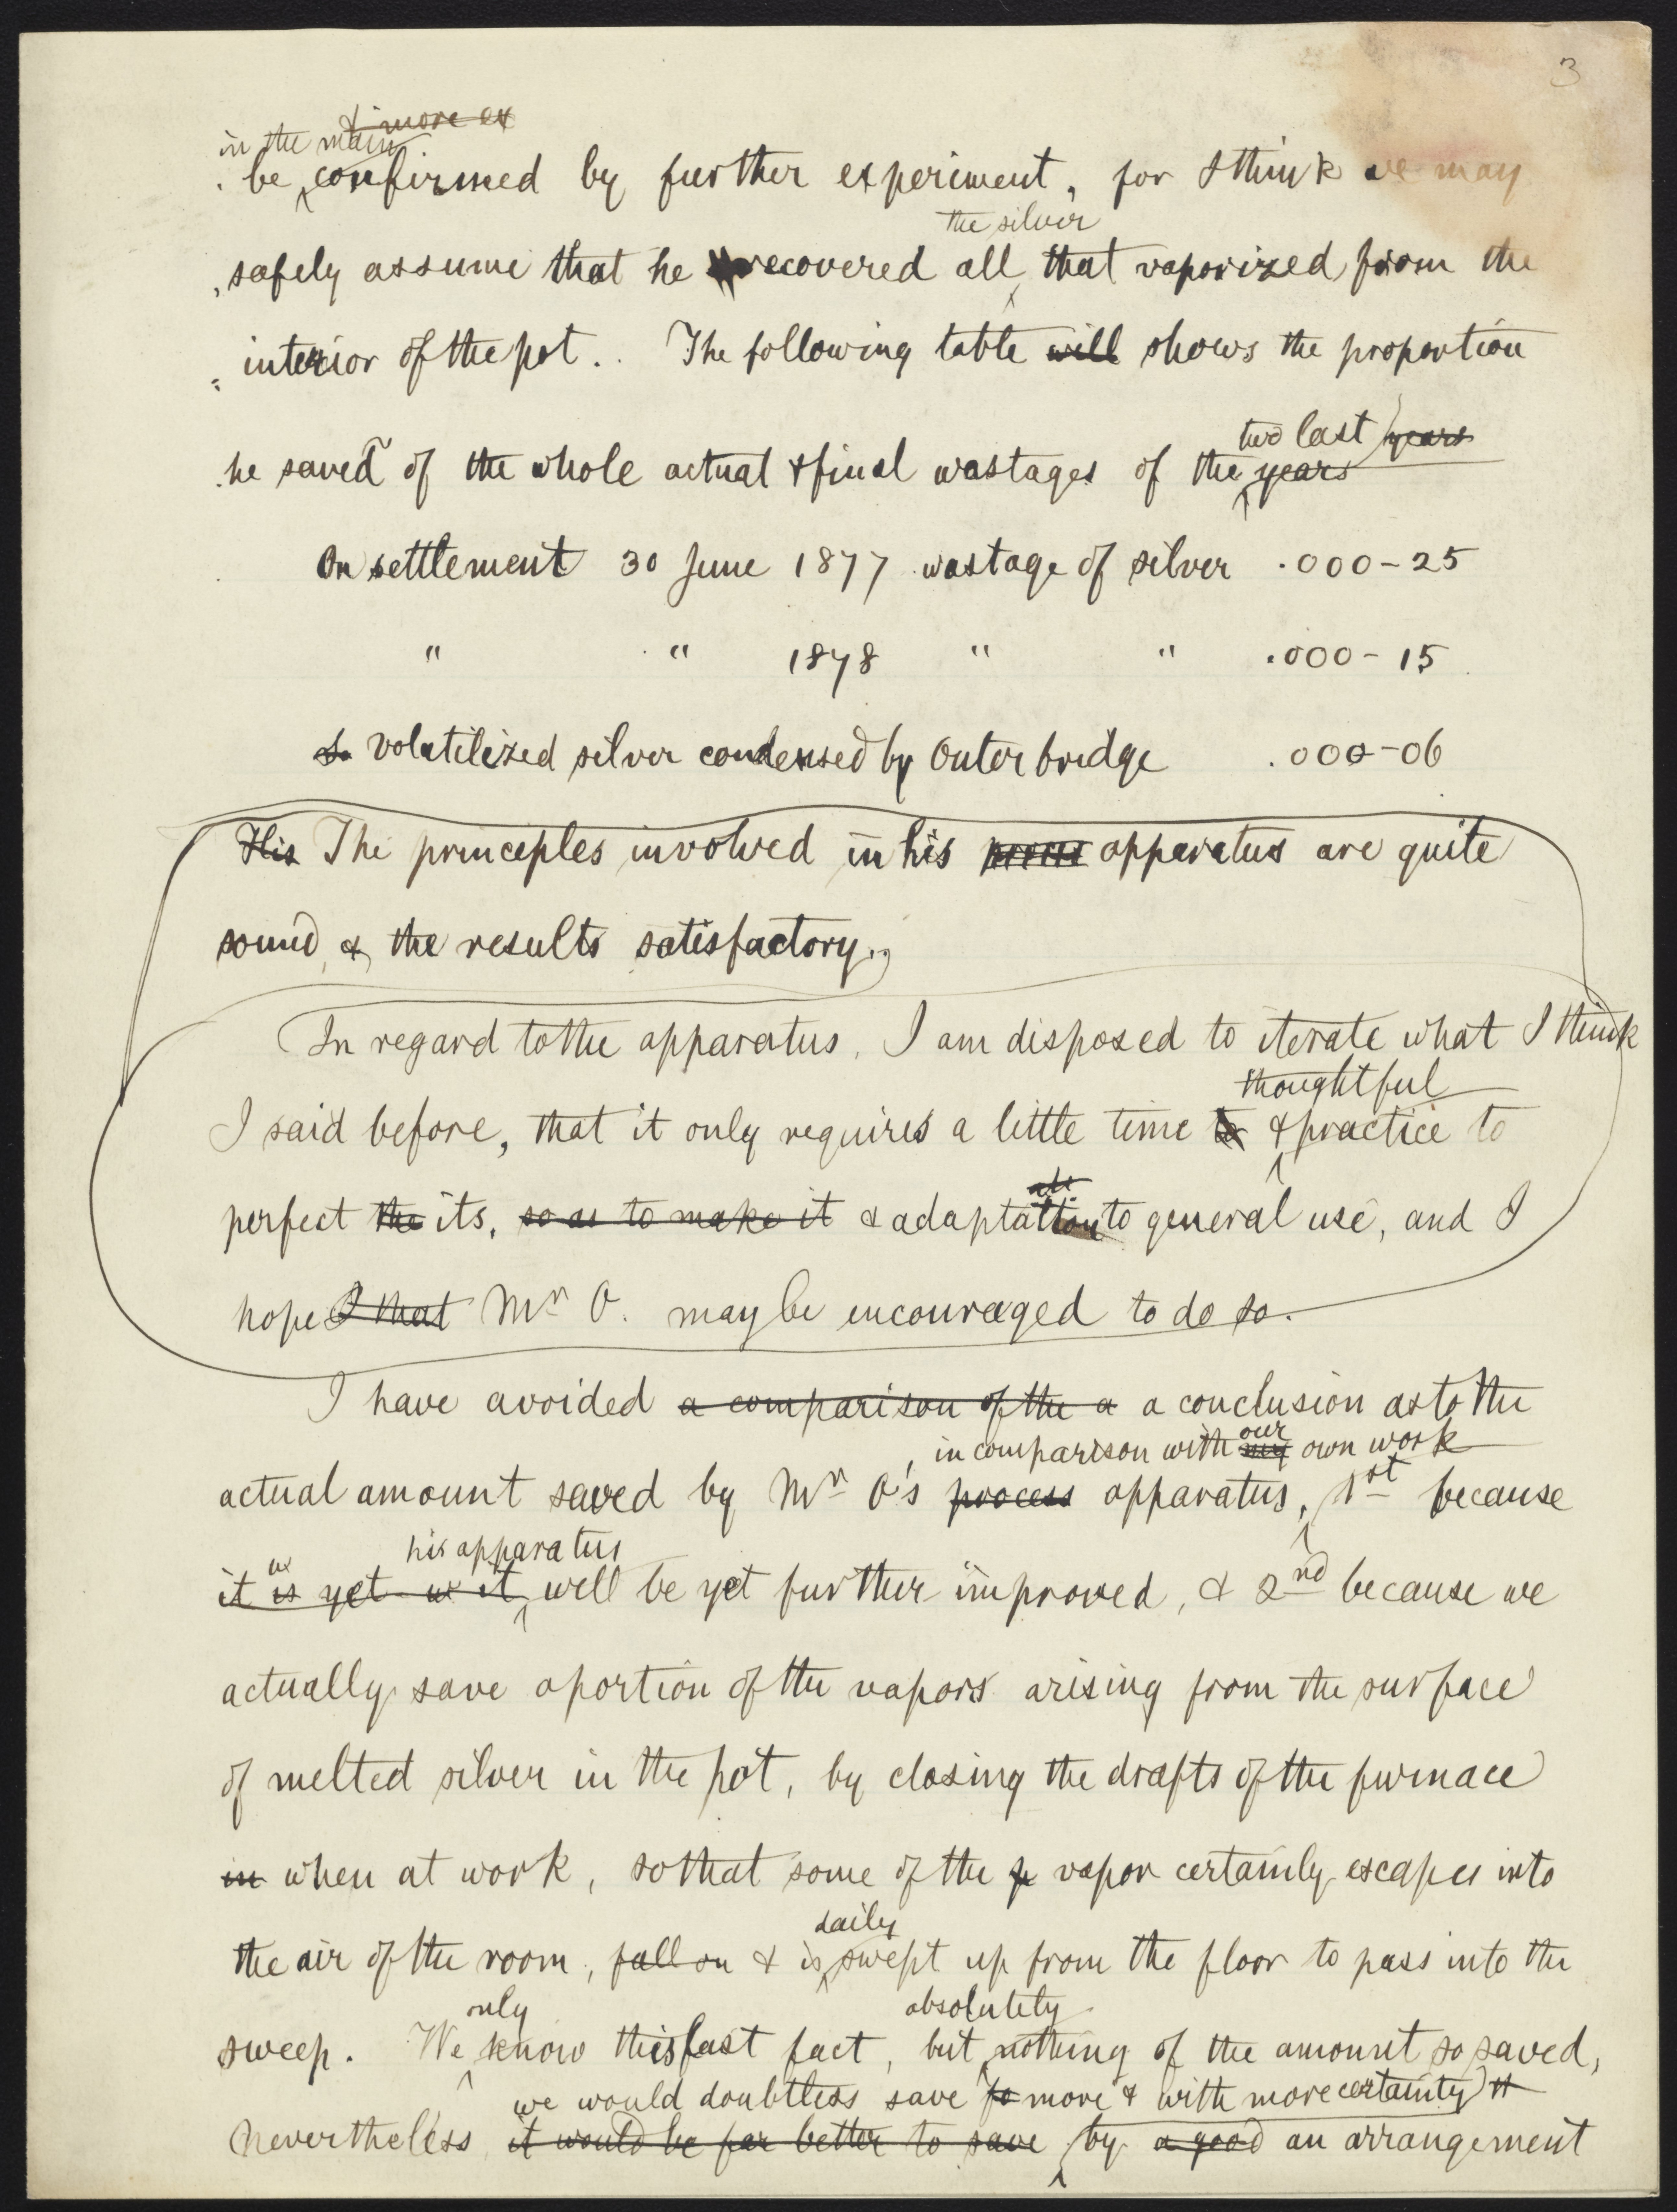 3
& more ex
in the main
be confirmed by further experiment, for I think we may
the silver
safely assume that he recovered all that vaporized from the
interior of the pot. The following table will shows the proportion
two last years
he saved of the whole actual & final wastages of the years
On settlement 30 June 1877 wastage of silver .000-25
" " 1878 " " .000-15
volatilized silver condensed by Outerbridge .000-06
His The principles involved in his apparatus are quite
sound, & the results satisfactory.
In regard to the apparatus, I am disposed to iterate what I think
thoughtful
I said before, that it only requires a little time to & practice to
perfect the its, so as to make it & adaptation to general use, and I
hope I that Mr O. may be encouraged to do so.
I have avoided a comparison of the a a conclusion as to the
in comparison with my our own work
actual amount saved by Mr O's process apparatus, 1st because
as his apparatus
it is yet as it will be yet further improved, & 2nd because we
actually save a portion of the vapors arising from the surface
of melted silver in the pot, by closing the drafts of the furnace
in when at work, so that some of the vapor certainly escapes into
daily
the air of the room, fall on & is swept up from the floor to pass into the
only absolutely
sweep. We know this last fact, but nothing of the amount so saved,
we would doubtless save more & with more certainty it
Nevertheless it would be far better to save by a good an arrangement